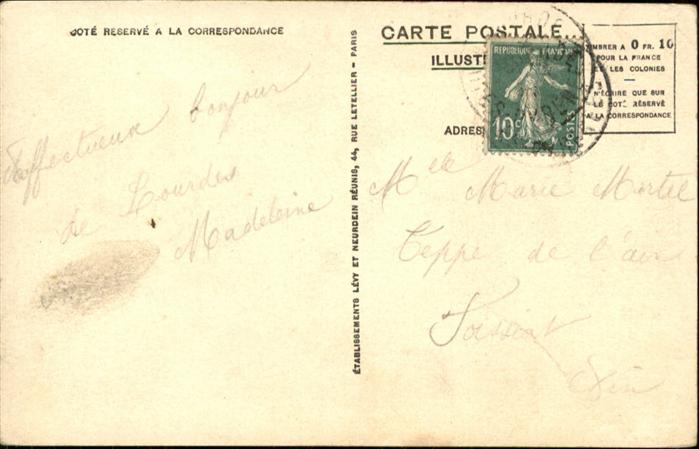 COTÉ RESERVÉ A LA CORRESPONDANCE
Affectueux bonjour
de Lourdes
Madeleine
ÉTABLISSEMENTS LÉVY ET NEURDEIN RÉUNIS, 44, RUE LETELLIER - PARIS
CARTE POSTALE
ILLUST
ADRES
REPUBLIQUE FRANÇAISE
10c
POSTES
TIMBRER A 0 FR. 10
POUR LA FRANCE
ET LES COLONIES
N'ÉCRIRE QUE SUR
LE COTÉ RÉSERVÉ
A LA CORRESPONDANCE
Mlle Marie Mortel
Teppe de l'air
Ain